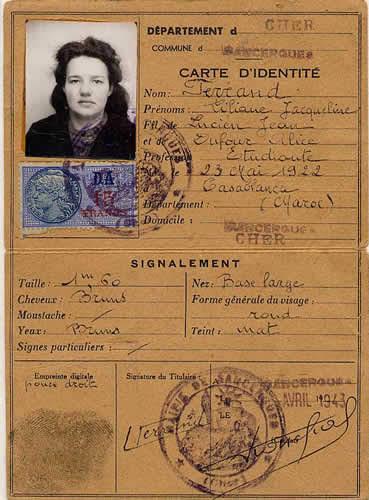 DÉPARTEMENT d CHER
COMMUNE d SANCERGUES
CARTE D'IDENTITÉ
Nom: Ferrand
Prénoms: Liliane Jacqueline
Fil de Lucien Jean
et de Dufour Alice
Profession Etudiante
23 Mai 1922
à Casablanca
Département: (Maroc)
Domicile: SANCERGUES
CHER
15
FRANCS
SIGNALEMENT
Taille: 1m60
Cheveux: Bruns
Moustache: /
Yeux: Bruns
Signes particuliers: /
Nez: Base large
Forme générale du visage:
rond
Teint: mat
Empreinte digitale
pouce droit
Signature du Titulaire:
SANCERGUES
AVRIL 1943
LE
MAIRIE DE SANCERGUES
(Cher)
LFerrand